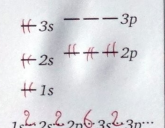 3s 3p
2s 2p
1s
1s² 2s² 2p⁶ 3s² 3p...